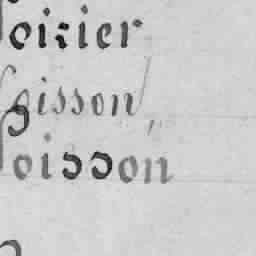 oisier
gisson
oisson